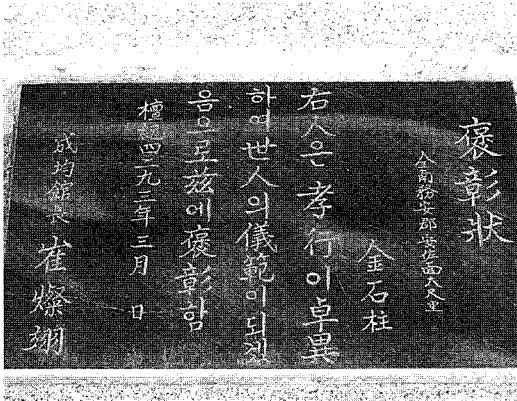 褒彰狀
全南務安郡安佐面大尺里
金石柱
右人은孝行이卓異
하여世人의儀範이되겠
음으로玆에褒彰함
檀紀四二九三年三月 日
成均館長 崔燦翊